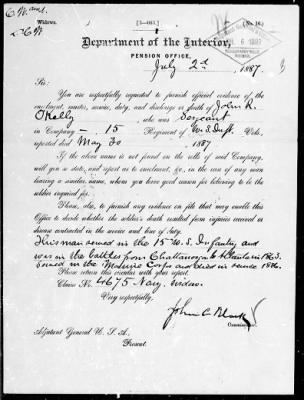 C. W. ans.
Widows.
[3—081.]
(No. 16.)
Department of the Interior,
PENSION OFFICE,
July 2d, 1887.
Sir:
You are respectfully requested to furnish official evidence of the
enrolment, muster, service, duty, and discharge or death of John R.
O'Kelly, who was Sergeant
in Company —, 15 Regiment of U. S. Inft., Vols.,
reported died May 30, 1887
If the above name is not found on the rolls of said Company,
will you so state, and report as to enrolment, &c., in the case of any man
bearing a similar name, whom you have good reason for believing to be the
soldier inquired for.
Please, also, to furnish any evidence on file that may enable this
Office to decide whether the soldier's death resulted from injuries received or disease
contracted in the service and line of duty.
This man served in the 15" U. S. Infantry and
was in the battles from Chattanooga to Atlanta in 1863.
Joined in the Marine Corps and died in service 1886.
Please return this circular with your report.
Claim No. 4675 Navy. Widow.
Very respectfully,
John C Black
Commissioner.
Adjutant General U. S. A.
Present.